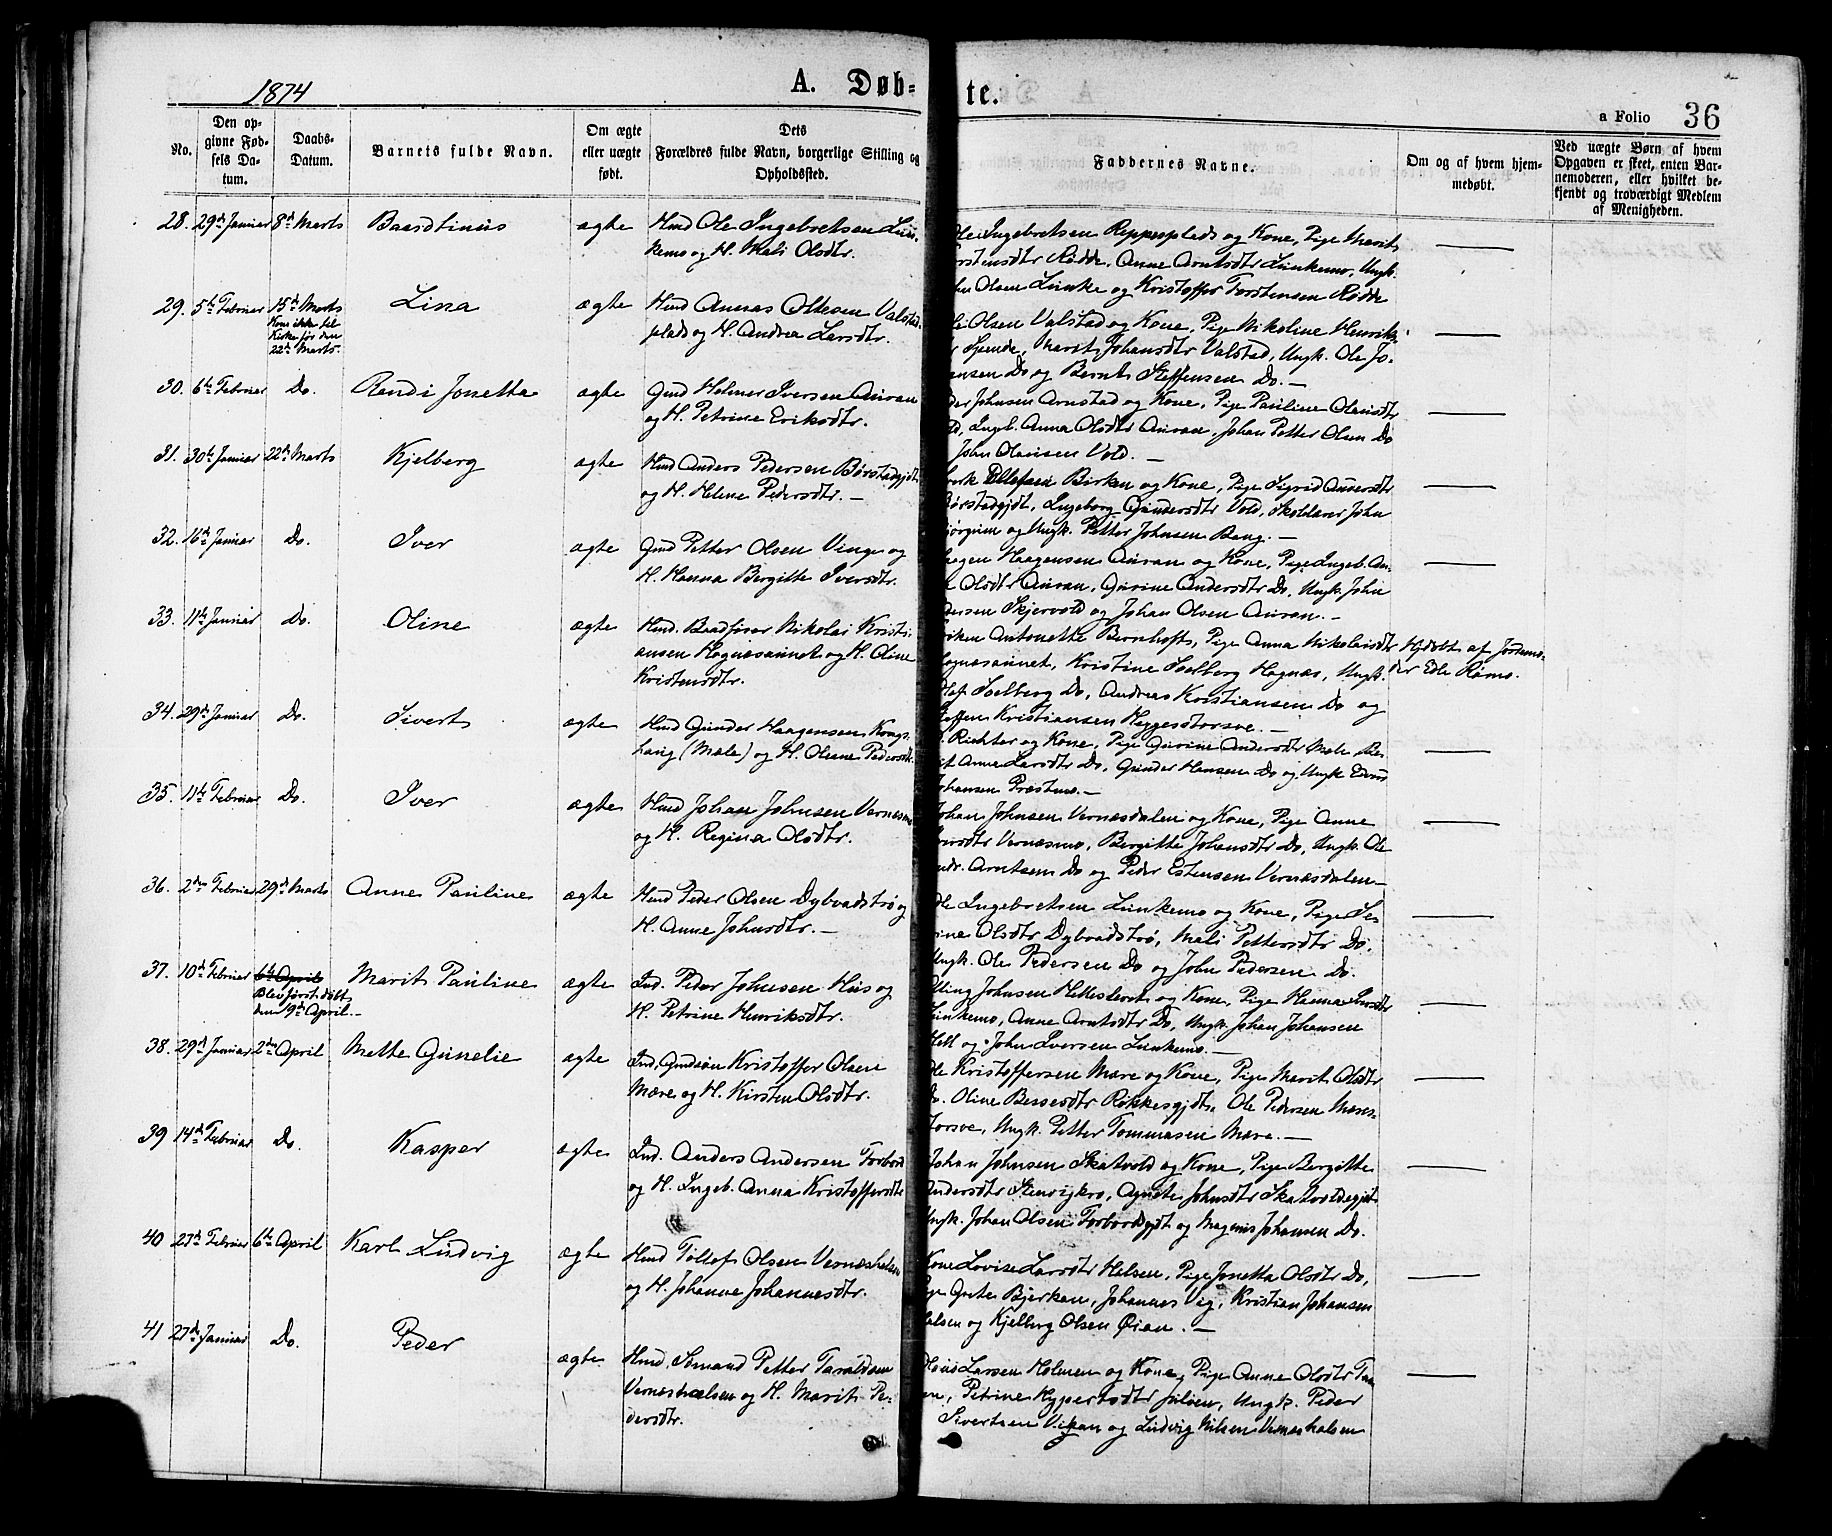 1874
A. Døb-
te.
a Folio 36
No.
Den op-
givne Fød-
sels Da-
tum.
Daabs-
Datum.
Barnets fulde Navn.
Om ægte
eller uægte
født.
Dets
Forældres fulde Navn, borgerlige Stilling og
Opholdssted.
Faddernes Navne.
Om og af hvem hjem-
medøbt.
Ved uægte Børn af hvem
Opgaven er skeet, enten Bar-
nemoderen, eller hvilket be-
kjendt og troværdigt Medlem
af Menigheden.
28. 29de Januar 8de Marts Baardtinus ægte Hmd Ole Ingebretsen Lun-
kemo og H. Mali Olsdtr.
Ole Ingebretsen Reppesplads og Kone, Pige Marit
Torstensdtr Rødde, Anne Arntsdtr Lunkemo, Ungk.
Olsen Lunke og Kristoffer Torstensen Rødde
29. 5te Februar 15de Marts Lina ægte Hmd Annas Olsen Valstad-
Kom ikke til
Kirke før den
22de Marts.
plads og H. Andrea Larsdtr.
Olsen Valstad og Kone, Pige Nikoline Henriks-
Marit Johansdtr Valstad, Ungk. Ole Jo-
ansen Do og Bernt Steffensen Do. —
30. 6te Februar Do. Randi Jonetta ægte Gmd Helmer Iversen Auran
og H. Petrine Eriksdtr.
Johnsen Arnstad og Kone, Pige Pauline Olausdtr
Ingeb. Anna Olsdtr Auran, Johan Petter Olsen Do
John Olausen Vold. —
31. 30te Januar 22de Marts Kjelberg ægte Hmd Anders Pedersen Børstadgjdt.
og H. Helene Pedersdtr. —
Birken og Kone, Pige Sigrid Andersdtr
Børstadgjdt, Ingeborg Gundersdtr Vold, Skolelærer John
og Ungk. Petter Johnsen Berg. —
32. 16de Januar Do. Iver ægte Gmd Petter Olsen Vinge og
H. Hanna Bergitte Iversdtr.
Haagensen Auran og Kone, Pige Ingeb. An-
Olsdtr Auran, Gurine Andersdtr Do, Ungk. John
Skjervold og Johan Olsen Auran. —
33. 11te Januar Do. Oline ægte Hmd. Baadfører Nikolai Kristi-
ansen Hognæsaunet og H. Oline
Kristensdtr.
Antonette Bernhoft, Pige Anna Nikolaisdtr Hjdøbt af Jordemo-
Hognæsaunet, Kristine Selberg Hognæs, Ungk. der Edle Rømo.
Selberg Do, Andreas Kristiansen Do og
Steffen Kristiansen Heggesstorsve. —
34. 29de Januar Do. Sivert ægte Hmd Gunder Haagensen Kongs-
haug (Mæle) og H. Olene Pedersdtr.
Richter og Kone, Pige Gurine Andersdtr Mæle, Be-
rit Anne Larsdtr Do, Gunder Hansen Do og Ungk. Edvard
Johansen Præstmo. —
35. 11te Februar Do. Iver ægte Hmd Johan Johnsen Vernæsmo
og H. Regina Olsdtr.
Johan Johnsen Vernæsdalen og Kone, Pige Anne
Iversdtr Vernæsmo, Bergitte Johansdtr Do, Ungk. Ole
Andr. Arntsen Do og Peder Estensen Vernæsdalen —
36. 2den Februar 29de Marts Anne Pauline ægte Hmd Peder Olsen Dybvadstrø og
H. Anne Johnsdtr. —
Ole Ingebretsen Lunkemo og Kone, Pige Se-
rine Olsdtr Dybvadstrø, Mali Pettersdtr Do,
Ungk. Ole Pedersen Do og John Pedersen Do.
37. 10de Februar 6te April Marit Pauline ægte Ind. Peder Johnsen Hus og
Blev først døbt
den 9de April.
H. Petrine Henriksdtr.
Elling Johnsen Hellesleret og Kone, Pige Hanna
Lunkemo, Anne Arntsdtr Do, Ungk. Johan Johansen
Hell og John Iversen Lunkemo. —
38. 29de Januar 2den April Mette Gunelie ægte Ind, Gmdsøn Kristoffer Olsen
Mære og H. Kirsten Olsdtr.
Ole Kristoffersen Mære og Kone, Pige Marit Olsdtr
Do. Oline Bessesdtr Røkkesgjdt, Ole Pedersen Mæres-
torsve, Ungk. Petter Tommasen Mære. —
39 14de Februar Do. Kasper ægte Ind. Anders Andersen Forbord
og H. Ingeb. Anna Kristoffersdtr
Johan Johnsen Skatvold og Kone, Pige Bergitte
Andersdtr Stenvigkro, Agnete Johnsdtr Skatvoldsgjdt
Ungk. Johan Olsen Forbordgjdt og Magnus Johansen Do.
40 27de Februar 6te April Karl Ludvig ægte Hmd Tollef Olsen Vernæshalsen
og H. Johanne Johannesdtr.
Kone Lovise Larsdtr Halsen, Pige Jonetta Olsdtr Do,
Grete Bjerkan, Johannes Vig, Kristian Johansen
Halsen og Kjelberg Olsen Øian. —
41 27de Januar Do. Peder ægte Hmd, Sømand Petter Taraldsen
Vernæshalsen og H. Marit Pe-
dersdtr.
Larsen Holmen og Kone, Pige Anne Olsdtr
Petrine Hyppertsdtr Julsen, Ungk. Peder
Sivertsen Vikan og Ludvig Nilsen Vernæshalsen